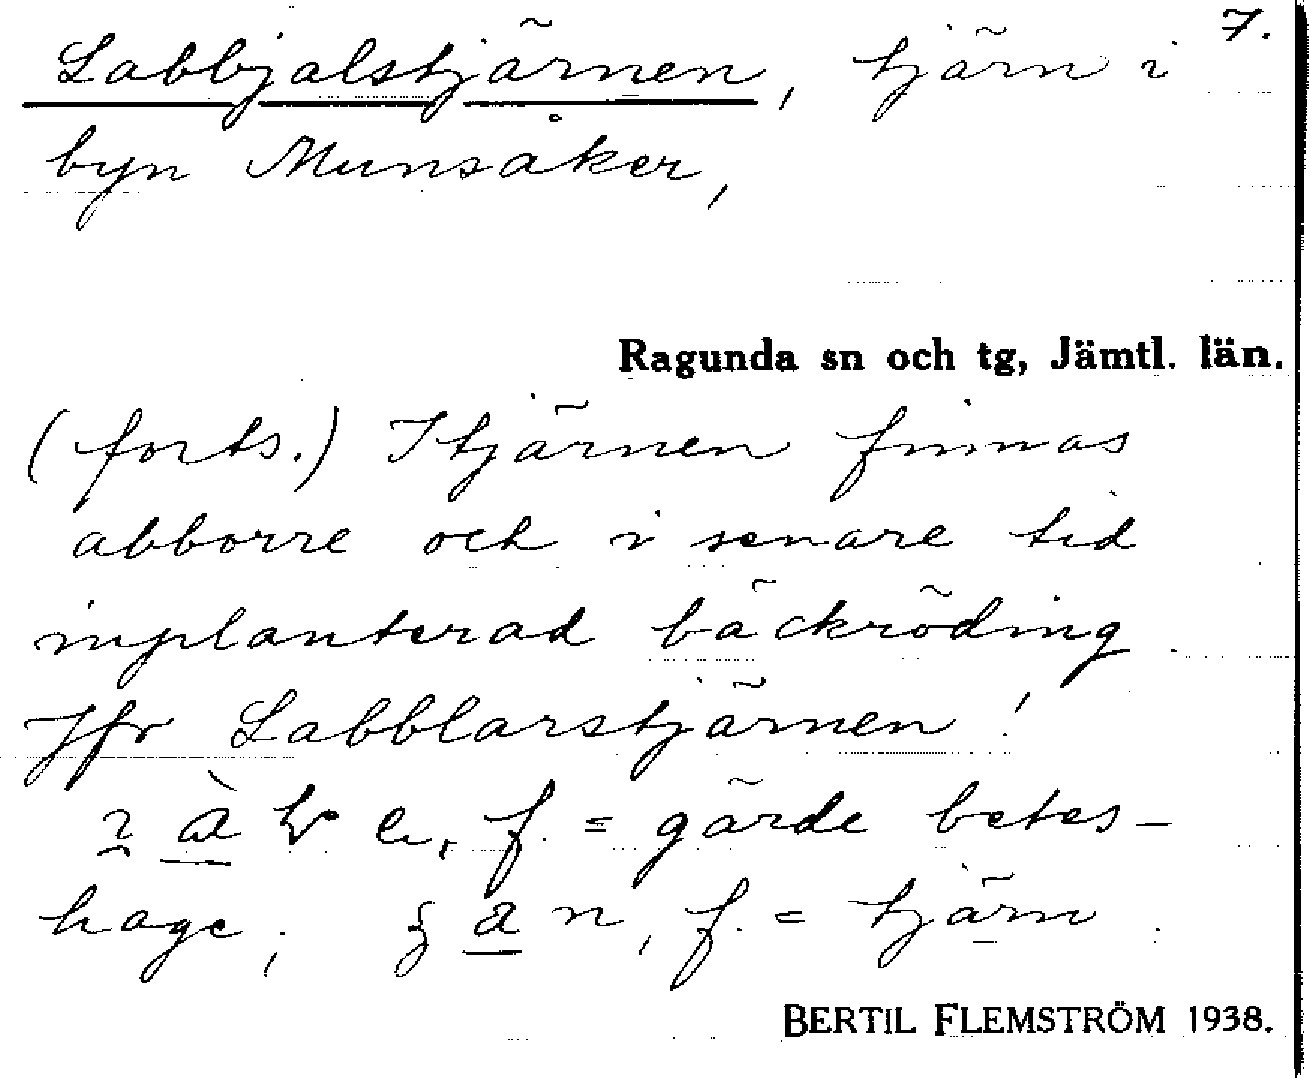 7.
Labbjalstjärnen, tjärn i
byn Munsåker,
Ragunda sn och tg, Jämtl. län.
(forts.) I tjärnen finnas
abborre och i senare tid
inplanterad bäckröding.
Jfr Labblarstjärnen!
f. = gärde betes-
hage; f. = tjärn.
BERTIL FLEMSTRÖM 1938.